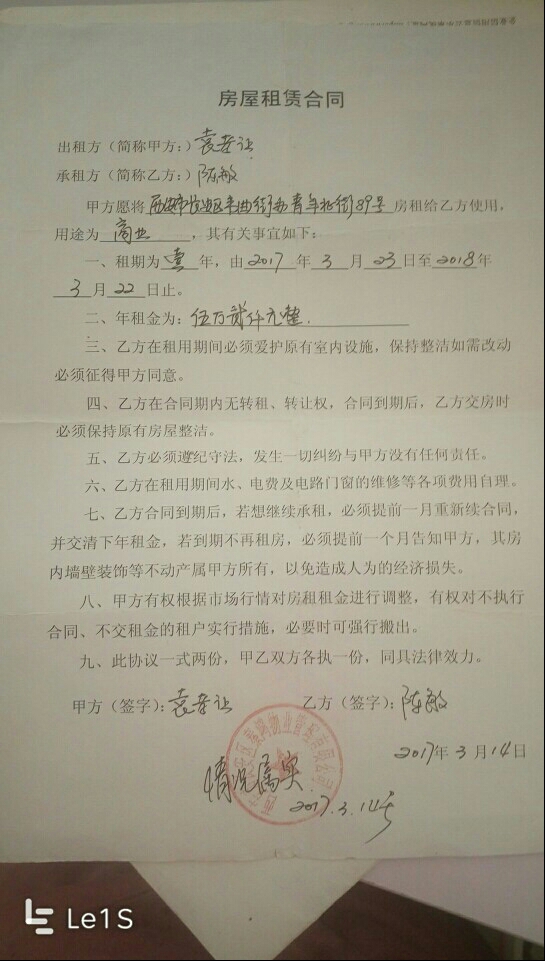 房屋租赁合同
出租方（简称甲方:）袁
承租方（简称乙方:）陈敏
甲方愿将西安市长安区韦曲街办青年北街89号房租给乙方使用，
用途为商业，其有关事宜如下：
一、租期为壹年，由2017年3月23日至2018年
3月22日止。
二、年租金为：伍万贰仟元整.
三、乙方在租用期间必须爱护原有室内设施，保持整洁如需改动
必须征得甲方同意。
四、乙方在合同期内无转租、转让权，合同到期后，乙方交房时
必须保持原有房屋整洁。
五、乙方必须遵纪守法，发生一切纠纷与甲方没有任何责任。
六、乙方在租用期间水、电费及电路门窗的维修等各项费用自理。
七、乙方合同到期后，若想继续承租，必须提前一月重新续合同，
并交清下年租金，若到期不再租房，必须提前一个月告知甲方，其房
内墙壁装饰等不动产属甲方所有，以免造成人为的经济损失。
八、甲方有权根据市场行情对房租租金进行调整，有权对不执行
合同、不交租金的租户实行措施，必要时可强行搬出。
九、此协议一式两份，甲乙双方各执一份，同具法律效力。
甲方（签字）：袁 乙方（签字）：陈敏
2017年3月14日
物业管理有限公司
情况属实
2017.3.14号
Le1S